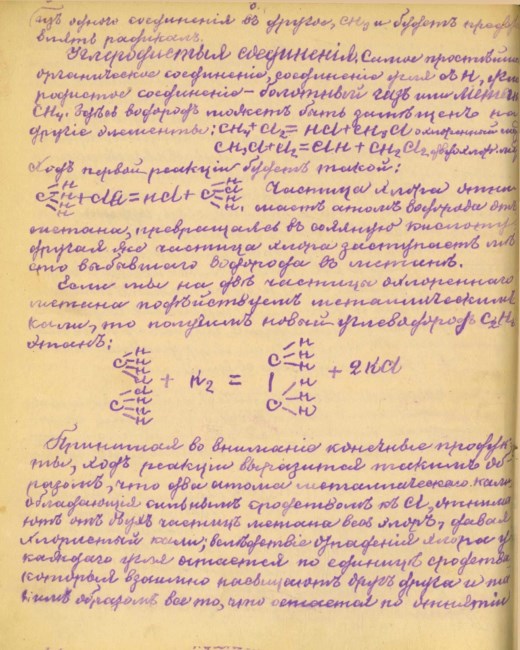 изъ одного соединенія въ другое, CH3 и будетъ представлять радикалъ.
Углеродистыя соединенія. Самое простѣйшее
органическое соединеніе, соединеніе угля съ H, угле
родистое соединеніе - болотный газъ или метанъ
CH4. Здѣсь водородъ можетъ быть замѣщенъ на
другіе элементы: CH4 + Cl2 = HCl + CH3Cl охлоренный
CH3Cl + Cl2 = ClH + CH2Cl2
Ходъ первой реакціи будетъ такой:
C H H H H + ClCl = HCl + C H Cl H H. Частица хлора отни
маетъ атомъ водорода отъ
метана, превращаясь въ соляную кислоту
другая же частица хлора заступаетъ мѣ
сто выбывшаго водорода въ метанѣ.
Если мы на двѣ частицы охлореннаго
метана подѣйствуемъ металлическимъ
кали, то получимъ новый углеводородъ C2H6
этанъ:
C H H H Cl
Cl H H H C + K2 = C H H H | C H H H + 2KCl
Принимая во вниманіе конечные продук
ты, ходъ реакціи выразится такимъ об
разомъ, что два атома металлическаго кали,
обладающія сильнымъ сродствомъ къ Cl, отнима
ютъ отъ двухъ частицъ метана весь хлоръ, давая
хлористый кали; вслѣдствіе отпаденія хлора у
каждаго угля остается по единицѣ сродства,
которыя взаимно насыщаютъ другъ друга и та
кимъ образомъ все то, что остается по отнятіи